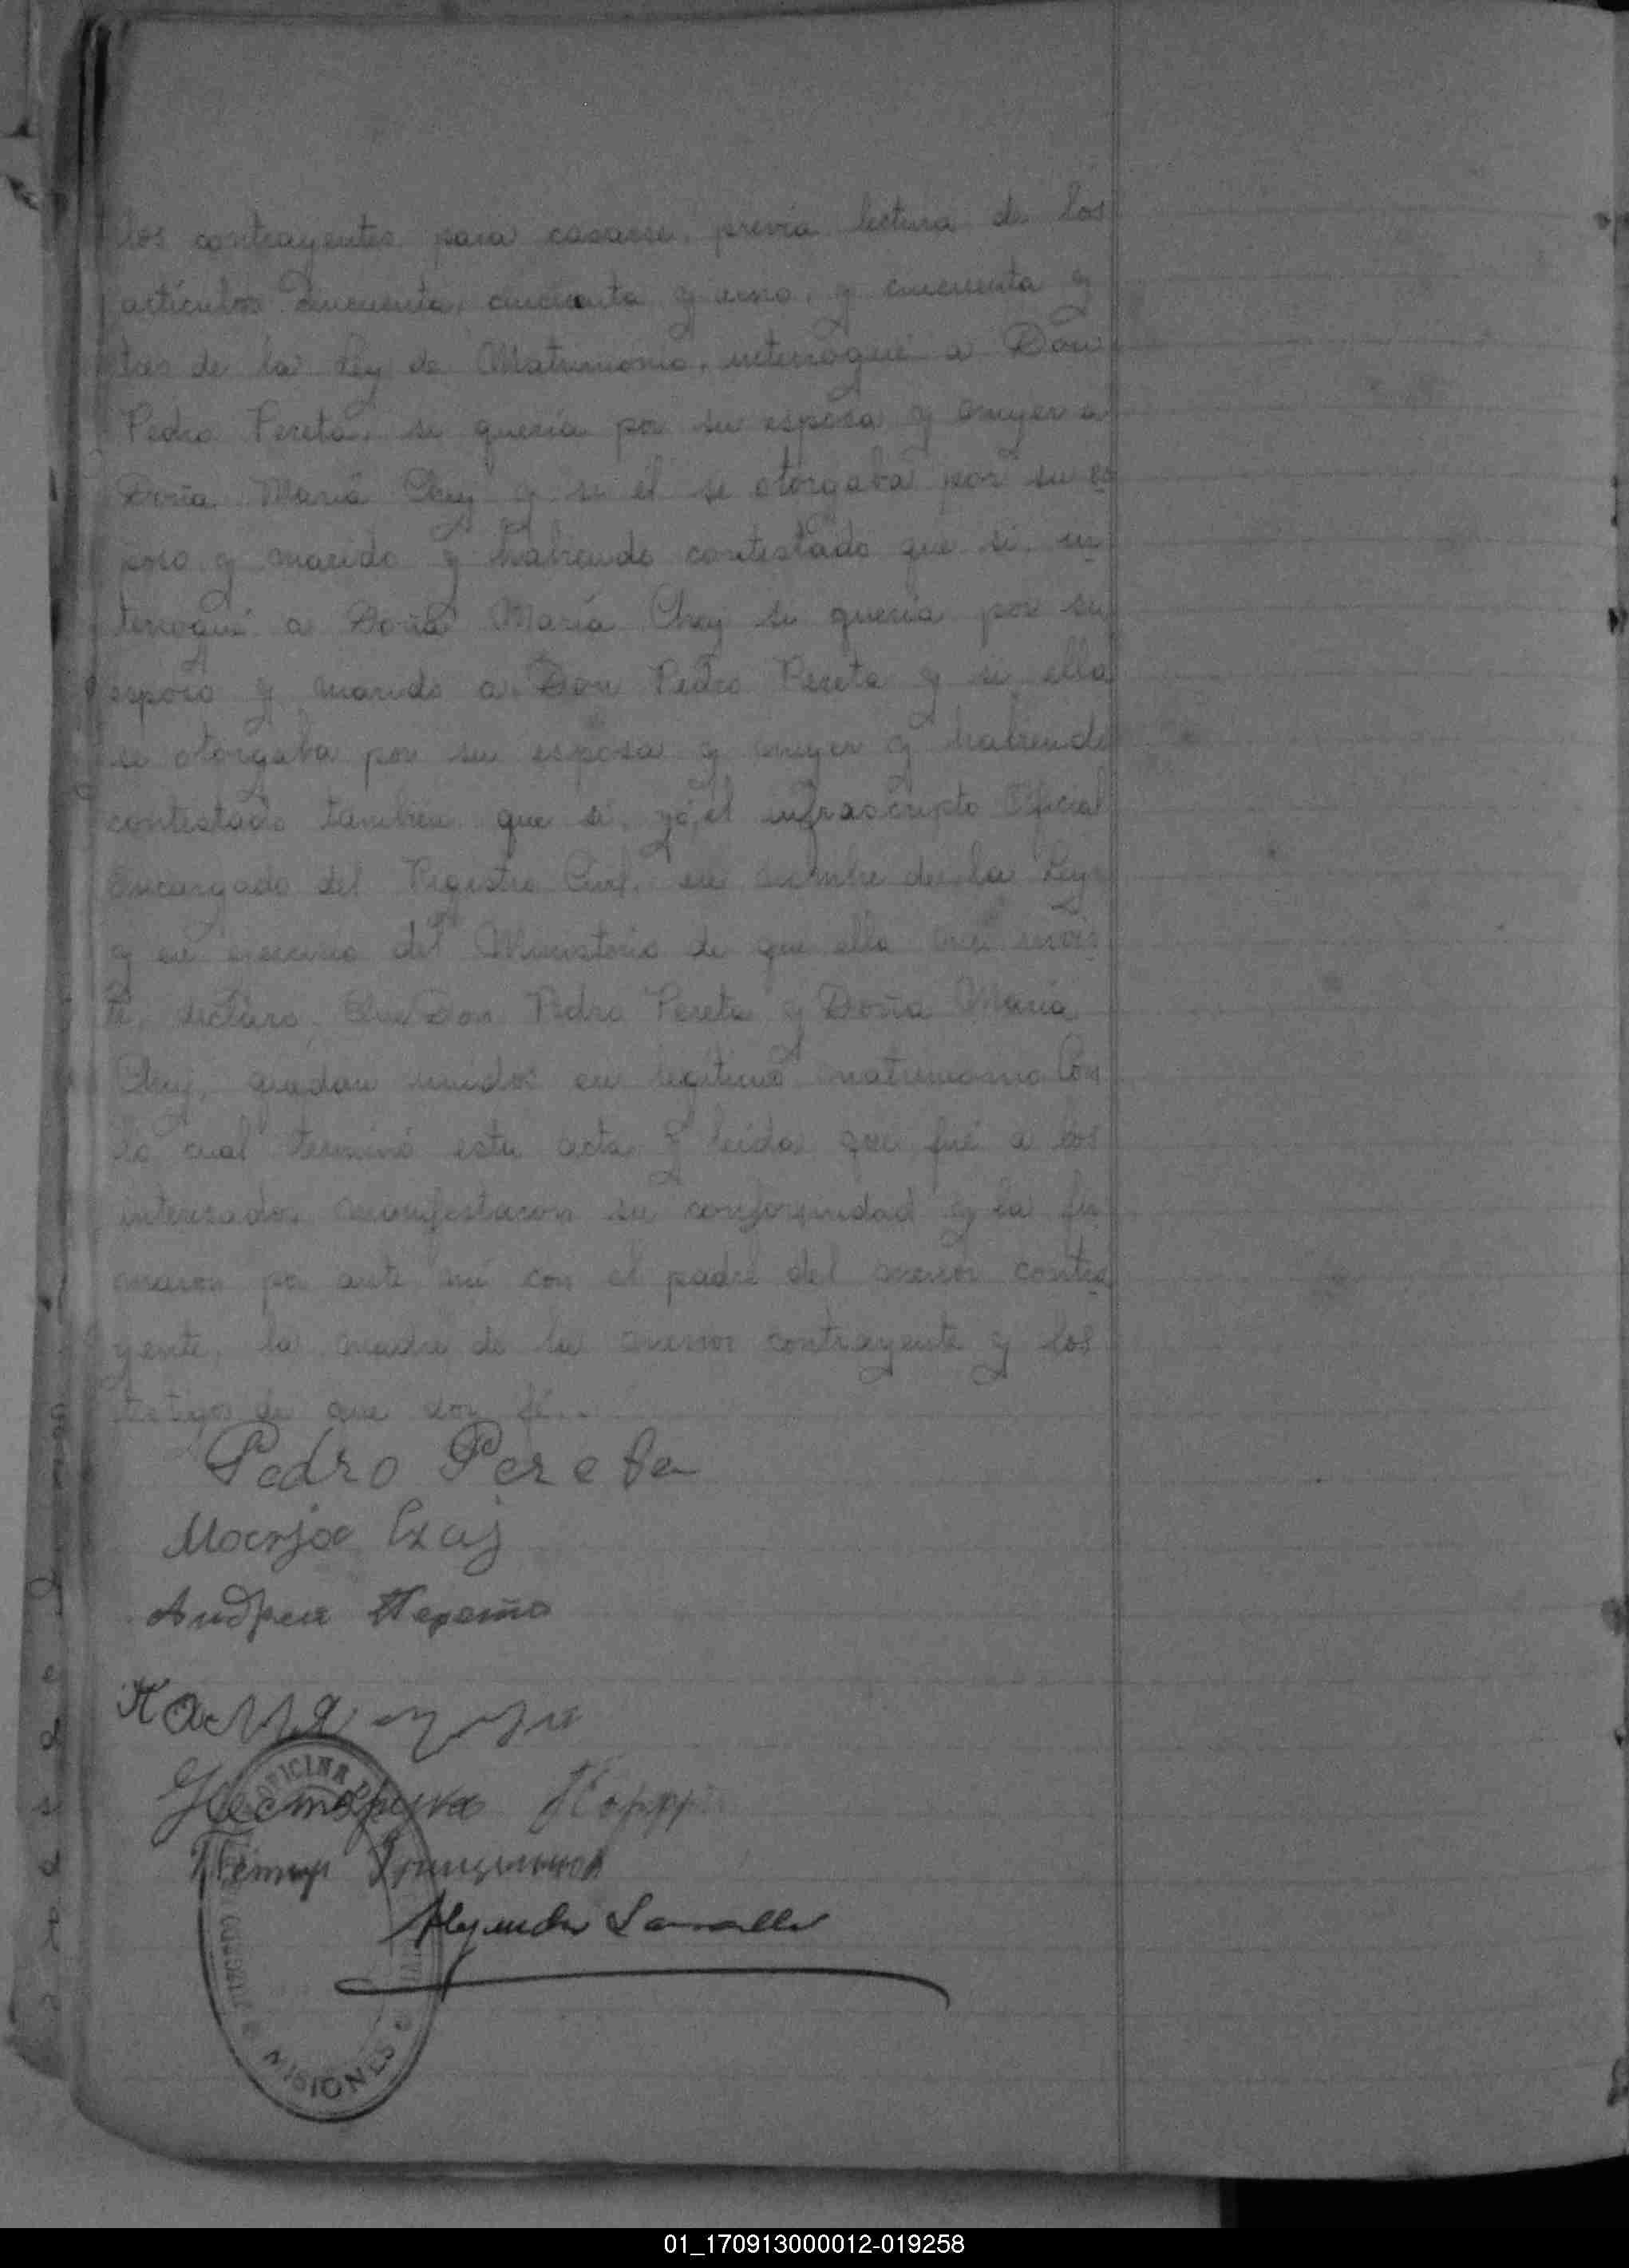 los contrayentes para casarse, previa lectura de los
artículos cincuenta, cincuenta y uno, y cincuenta y
tres de la Ley de Matrimonio, interrogué a Don
Pedro Pereta, si quería por su esposa y mujer a
Doña María Chey y si él se otorgaba por su es
poso y marido y habiendo contestado que si, in
terrogué a Doña María Chey si quería por su
esposo y marido a Don Pedro Pereta y si ella
se otorgaba por su esposa y mujer y habiendo
contestado también que si, yo, el infrascripto Oficial
Encargado del Registro Civil, en nombre de la Ley
y en ejercicio del Ministerio de que ella me invis
te, declaro, Que Don Pedro Pereta y Doña María
Chey, quedan unidos en legítimo matrimonio Con
lo cual terminó esta acta y leida que fué a los
interesados manifestaron su conformidad y la fir
maron por ante mí con el padre del menor contra
yente, la madre de la menor contrayente y los
testigos de que doy fé..
Pedro Pereta
Marja Czaj
Андреи Перета
OFICINA
MISIONES
01_170913000012-019258